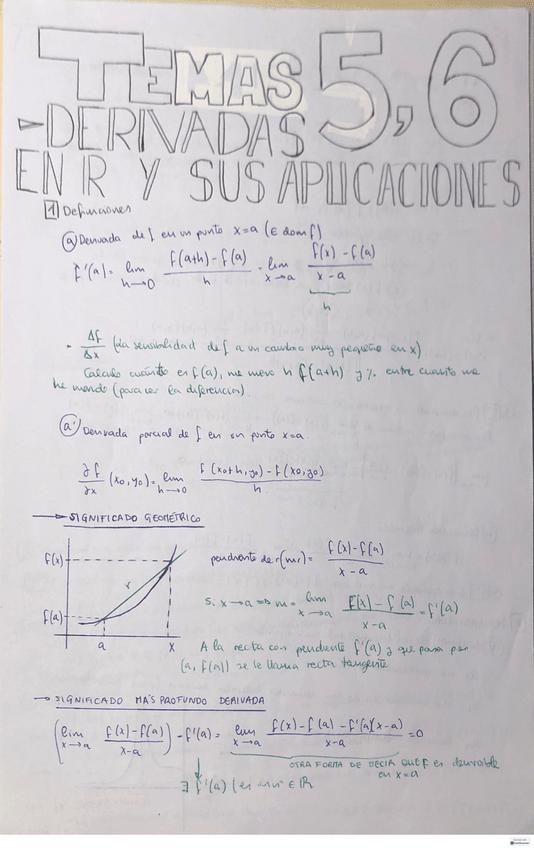 TEMAS 5,6
DERIVADAS
EN R Y SUS APLICACIONES
1 Definiciones
a Derivada de f en un punto x=a (∈ dom f)
f'(a) = lim h→0 f(a+h) - f(a) / h = lim x→a f(x) - f(a) / x - a
h
- Δf/Δx (la sensibilidad de f a un cambio muy pequeño en x)
Calculo cuánto es f(a), me muevo h f(a+h) y % entre cuanto me
he movido (para ver la diferencia)
a' Derivada parcial de f en un punto x=a.
∂f/∂x (x0, y0) = lim h→0 f(x0+h, y0) - f(x0, y0) / h
→ SIGNIFICADO GEOMÉTRICO
f(x)
f(a)
r
a x
pendiente de r (mr) = f(x) - f(a) / x - a
Si x→a ⇒ m = lim x→a f(x) - f(a) / x-a = f'(a)
A la recta con pendiente f'(a) y que pasa por
(a, f(a)) se le llama recta tangente
→ SIGNIFICADO MÁS PROFUNDO DERIVADA
(lim x→a f(x) - f(a) / x-a) - f'(a) = lim x→a f(x) - f(a) - f'(a)(x-a) / x-a = 0
OTRA FORMA DE DECIR QUE f es derivable
en x=a
∃ f'(a) ∈ R